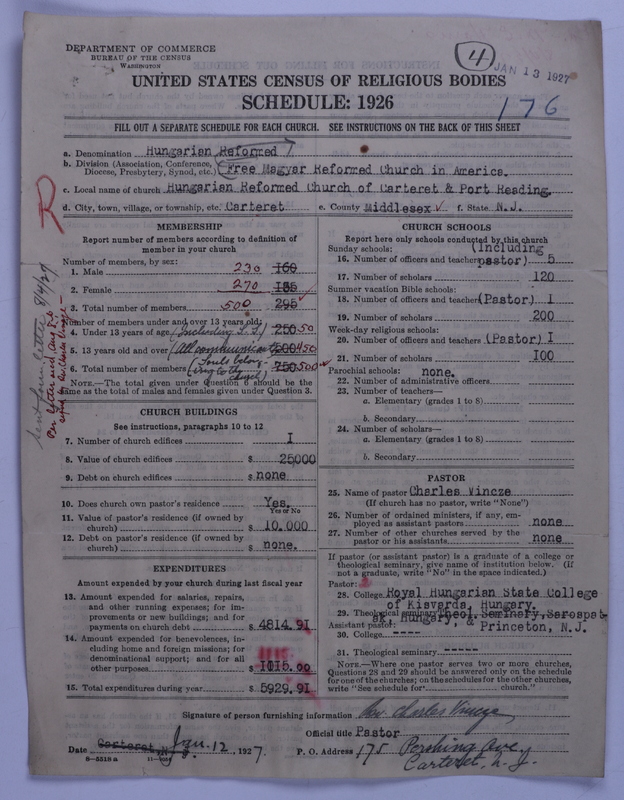 DEPARTMENT OF COMMERCE
BUREAU OF THE CENSUS
WASHINGTON
4
JAN 13 1927
UNITED STATES CENSUS OF RELIGIOUS BODIES
SCHEDULE: 1926
176
FILL OUT A SEPARATE SCHEDULE FOR EACH CHURCH. SEE INSTRUCTIONS ON THE BACK OF THIS SHEET
a. Denomination Hungarian Reformed
b. Division (Association, Conference, Diocese, Presbytery, Synod, etc.) (Free Magyar Reformed Church in America.
c. Local name of church Hungarian Reformed Church of Carteret & Port Reading.
d. City, town, village, or township, etc. Carteret e. County Middlesex ✓ f. State N.J.
R
Sent form letter 8/4/27
MEMBERSHIP
Report number of members according to definition of
member in your church
Number of members, by sex:
1. Male 230 160
2. Female 270 135
3. Total number of members 500 295 ✓
Number of members under and over 13 years old:
4. Under 13 years of age (Including S.S.) 250 50
5. 13 years old and over (All communicants 500 450
6. Total number of members (Souls belonging to the church) 750 500
NOTE.—The total given under Question 6 should be the
same as the total of males and females given under Question 3.
CHURCH BUILDINGS
See instructions, paragraphs 10 to 12
7. Number of church edifices I
8. Value of church edifices $ 25000
9. Debt on church edifices $ none
10. Does church own pastor's residence Yes.
Yes or No
11. Value of pastor's residence (if owned by
church) $ 10.000
12. Debt on pastor's residence (if owned by
church) $ none.
EXPENDITURES
Amount expended by your church during last fiscal year
13. Amount expended for salaries, repairs,
and other running expenses; for im-
provements or new buildings; and for
payments on church debt $ 4814.91
14. Amount expended for benevolences, in-
cluding home and foreign missions; for
denominational support; and for all
other purposes 1115 $ 1015.00
15. Total expenditures during year $ 5929.91
CHURCH SCHOOLS
Report here only schools conducted by this church
Sunday schools: (Including
16. Number of officers and teachers pastor) 5
17. Number of scholars 120
Summer vacation Bible schools:
18. Number of officers and teachers (Pastor) I
19. Number of scholars 200
Week-day religious schools:
20. Number of officers and teachers (Pastor) I
21. Number of scholars I00
Parochial schools: none.
22. Number of administrative officers
23. Number of teachers—
a. Elementary (grades 1 to 8)
b. Secondary
24. Number of scholars—
a. Elementary (grades 1 to 8)
b. Secondary
PASTOR
25. Name of pastor Charles Vincze
(If church has no pastor, write "None")
26. Number of ordained ministers, if any, em-
ployed as assistant pastors none
27. Number of other churches served by the
pastor or his assistants none
If pastor (or assistant pastor) is a graduate of a college or
theological seminary, give name of institution below. (If
not a graduate, write "No" in the space indicated.)
Pastor:
28. College Royal Hungarian State College
of Kisvarda, Hungary.
29. Theological seminary Theol. Seminary, Sarospat-
ak, Hungary, & Princeton, N.J.
Assistant pastor:
30. College ----
31. Theological seminary -----
NOTE.—Where one pastor serves two or more churches,
Questions 28 and 29 should be answered only on the schedule
for one of the churches; on the schedules for the other churches,
write "See schedule for church."
Signature of person furnishing information Rev. Charles Vincze
Official title Pastor
Date Carteret, N.J. Jan. 12, 1927. P. O. Address 175 Pershing Ave,
Carteret, N.J.
8—5518a